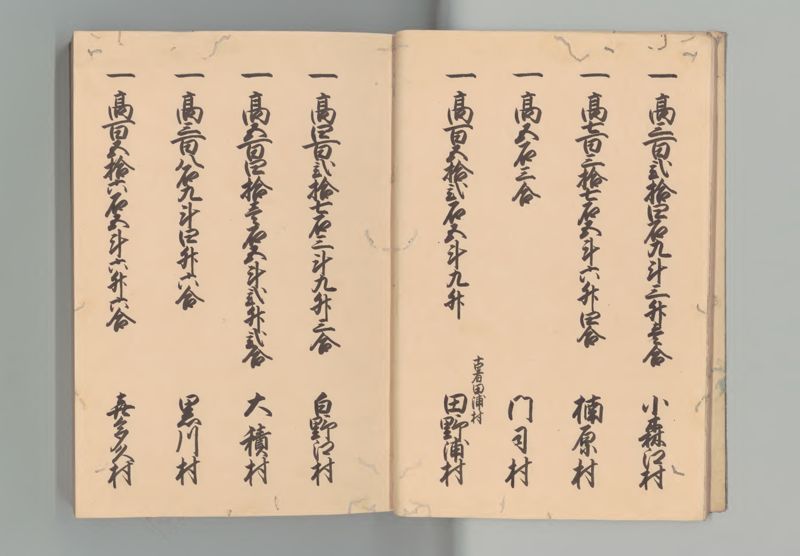 一高三百弐拾四石九斗三升壱合 小森江村
一高七百三拾七石五斗六升四合 楠原村
一高五石三合 門司村
古者田浦村
一高百五拾弐石五斗九升 田野浦村
一高四百弐拾七石三斗九升三合 白野江村
一高五百四拾壱石五斗弐升弐合 大積村
一高三百八石九斗四升六合 黒川村
一高百五拾六石五斗六升六合 喜多久村